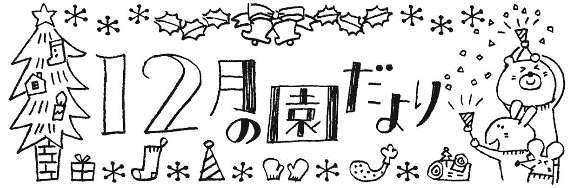 12月の園だより